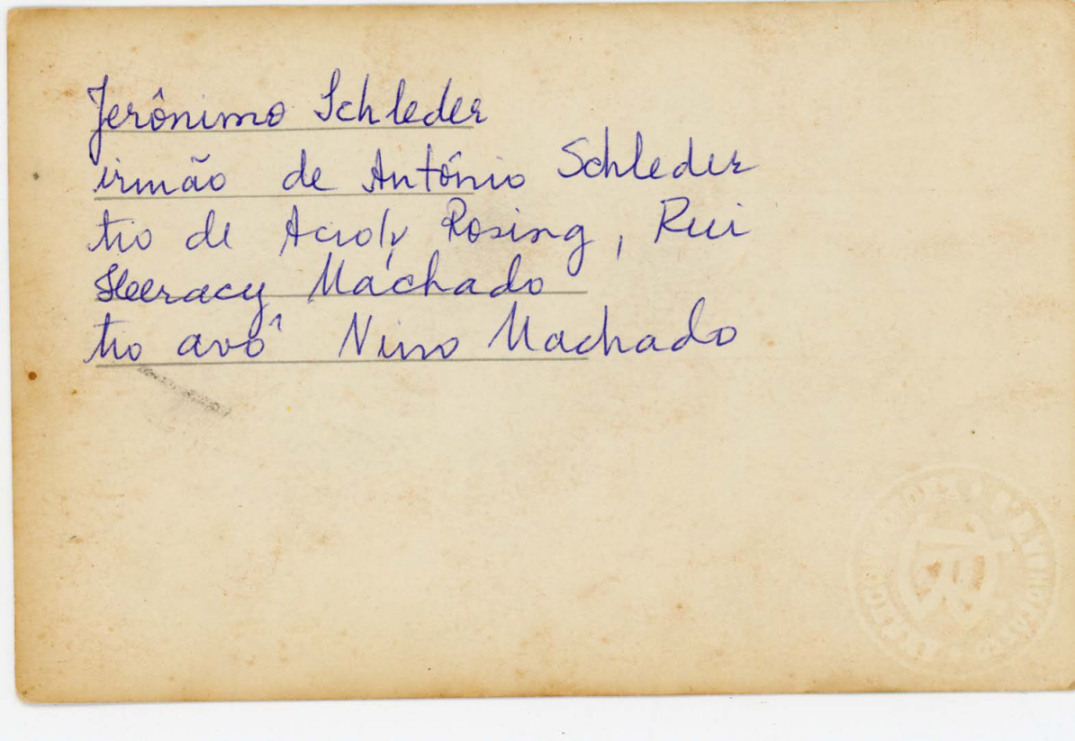 Jerônimo Schleder
irmão de António Schleder
tio de Acioly Rosing, Rui
Heracy Machado
tio avô Nino Machado